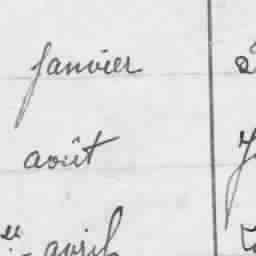 janvier
août
avril